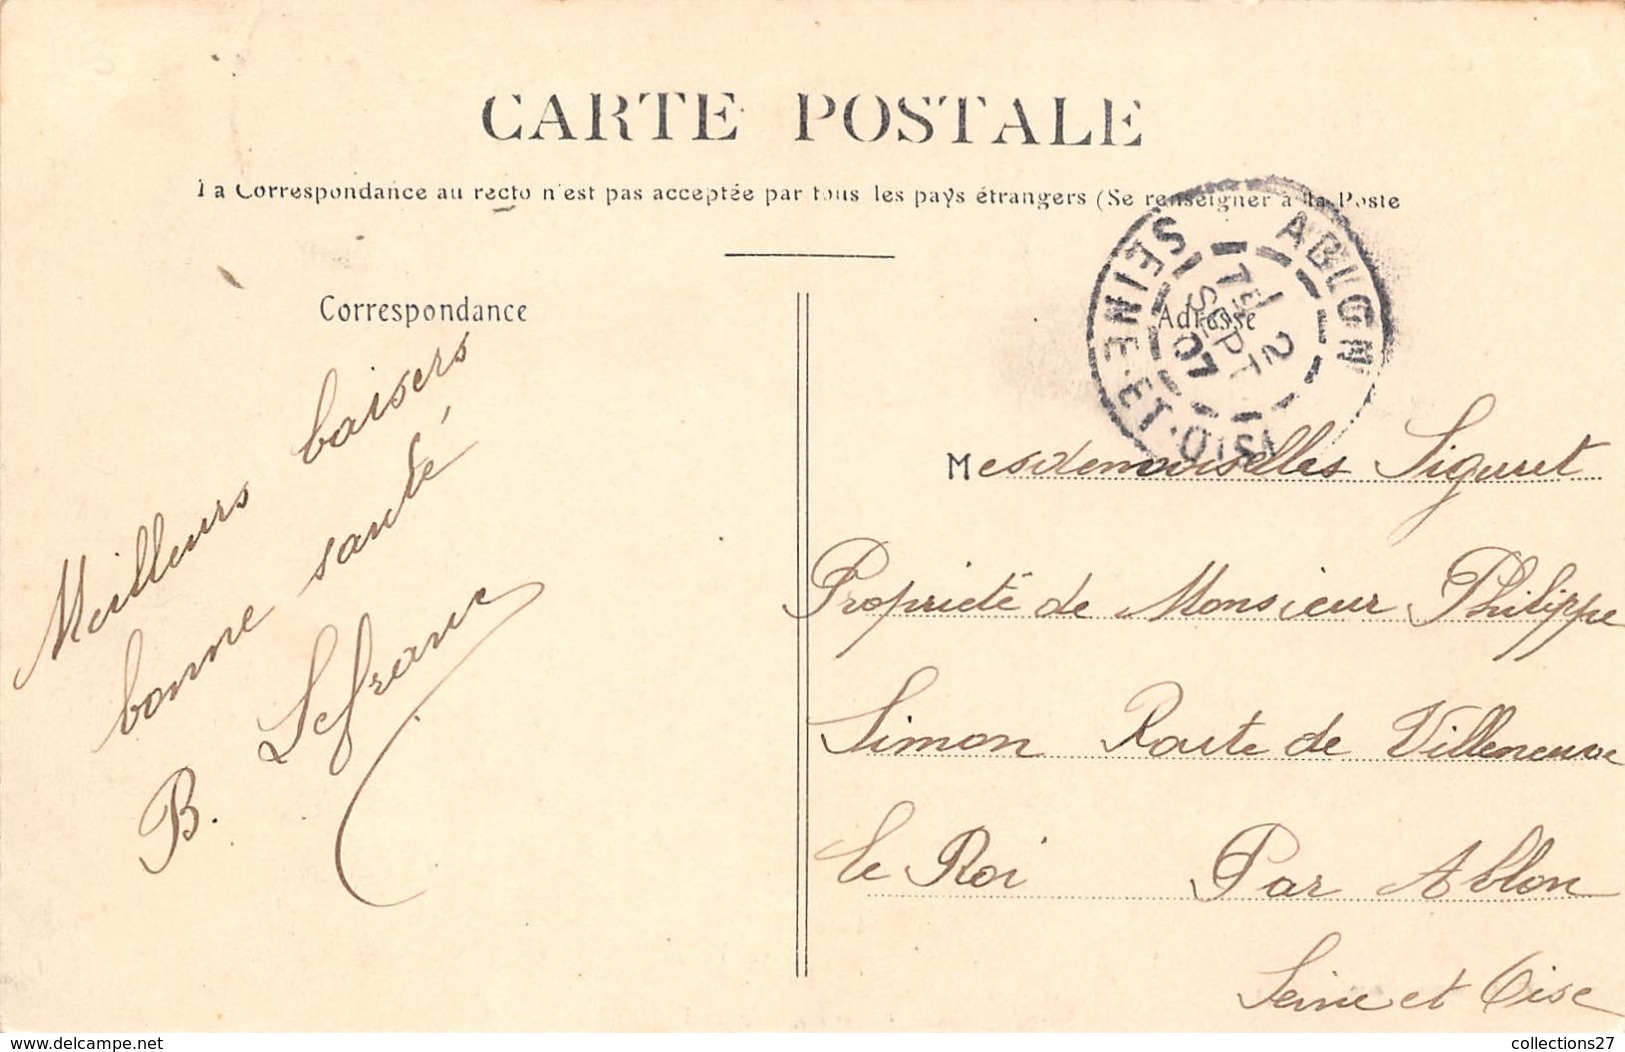 CARTE POSTALE
La Correspondance au recto n'est pas acceptée par tous les pays étrangers (Se renseigner à la Poste
Correspondance
Meilleurs baisers
bonne santé
B. Lefranc
Adresse
ABLON
SEINE-ET-OISE
7E 12
SEPT
07
Mesdemoiselles Siguret
Propriété de Monsieur Philippe
Simon Route de Villeneuve
le Roi Par Ablon
Seine et Oise
collections27